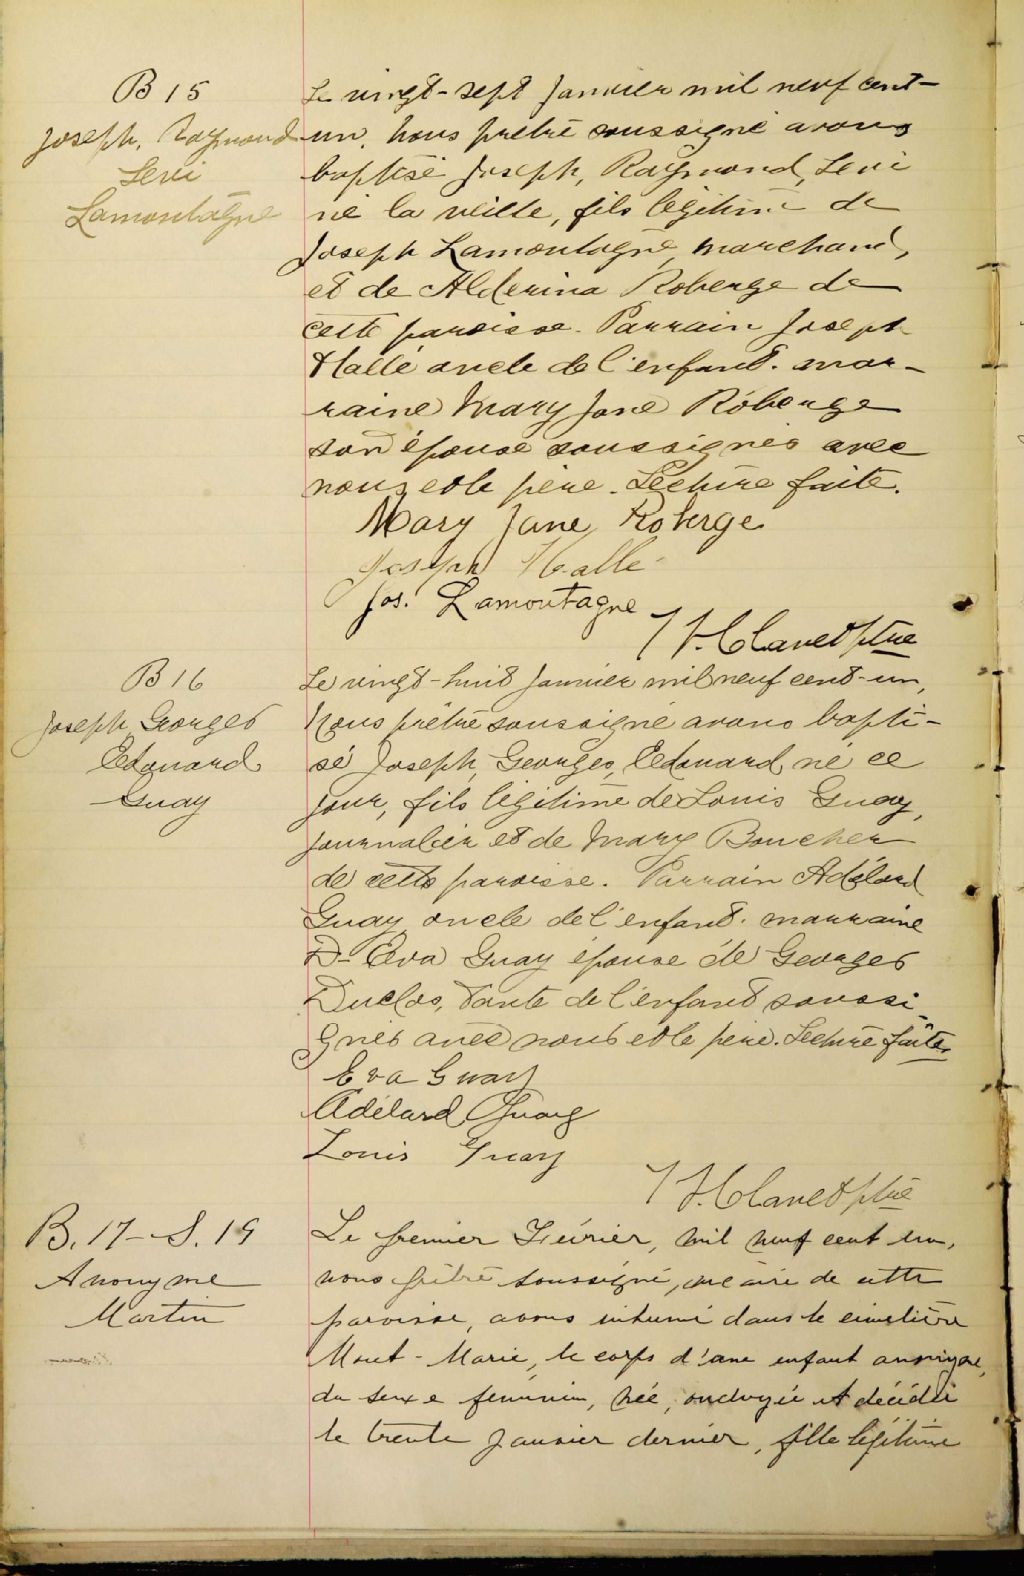 B 15
Joseph, Raymond
Levi
Lamontagne
Le vingt-sept Janvier mil neuf cent-
un, nous prêtre soussigné avons
baptisé Joseph, Raymond, Levi
né la veille, fils légitime de
Joseph Lamontagne, marchand,
et de Alderina Roberge de
cette paroisse. Parrain Joseph
Hallé oncle de l'enfant. mar-
raine Mary Jane Roberge
son épouse soussignés avec
nous et le père. Lecture faite.
Mary Jane Roberge
Joseph Hallé
Jos. Lamontagne
V. Clavet ptre
B 16
Joseph, Georges
Edouard
Guay
Le vingt-huit Janvier mil neuf cent-un,
Nous prêtre soussigné avons bapti-
sé Joseph, Georges, Edouard, né ce
jour, fils légitime de Louis Guay,
journalier et de Mary Boucher
de cette paroisse. Parrain Adélard
Guay, oncle de l'enfant. marraine
D- Eva Guay épouse de Georges
Duclos, tante de l'enfant soussi-
gnés avec nous et le père. Lecture faite.
Eva Guay
Adélard Guay
Louis Guay
Clavet ptre
B. 17- S. 19
Anonyme
Martin
Le premier Février, mil neuf cent un,
nous prêtre soussigné, vicaire de cette
paroisse, avons inhumé dans le cimetière
Mont-Marie, le corps d'une enfant anonyme,
du sexe feminin, née, ondoyée et décédée
le trente Janvier dernier, fille légitime